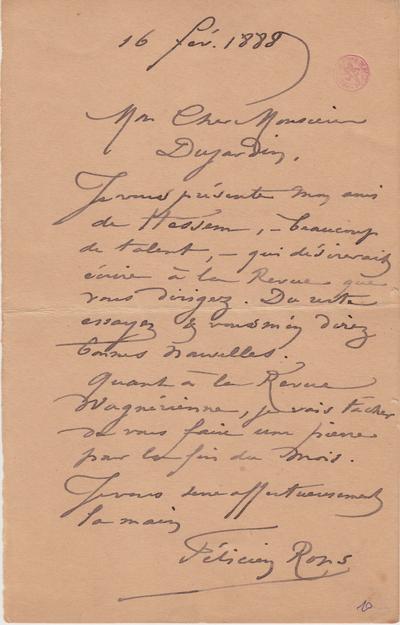 16 fév. 1888
Mon Cher Monsieur
Dujardin,
Je vous présente mon ami
de Hessem, – beaucoup
de talent, – qui désirerait
écrire à la Revue que
vous dirigez. Du reste
essayez & vous m'en direz
bonnes nouvelles.
Quant à la Revue
Wagnérienne, je vais tâcher
de vous faire une pierre
pour la fin du mois.
Je vous serre affectueusement
la main
Félicien Rops